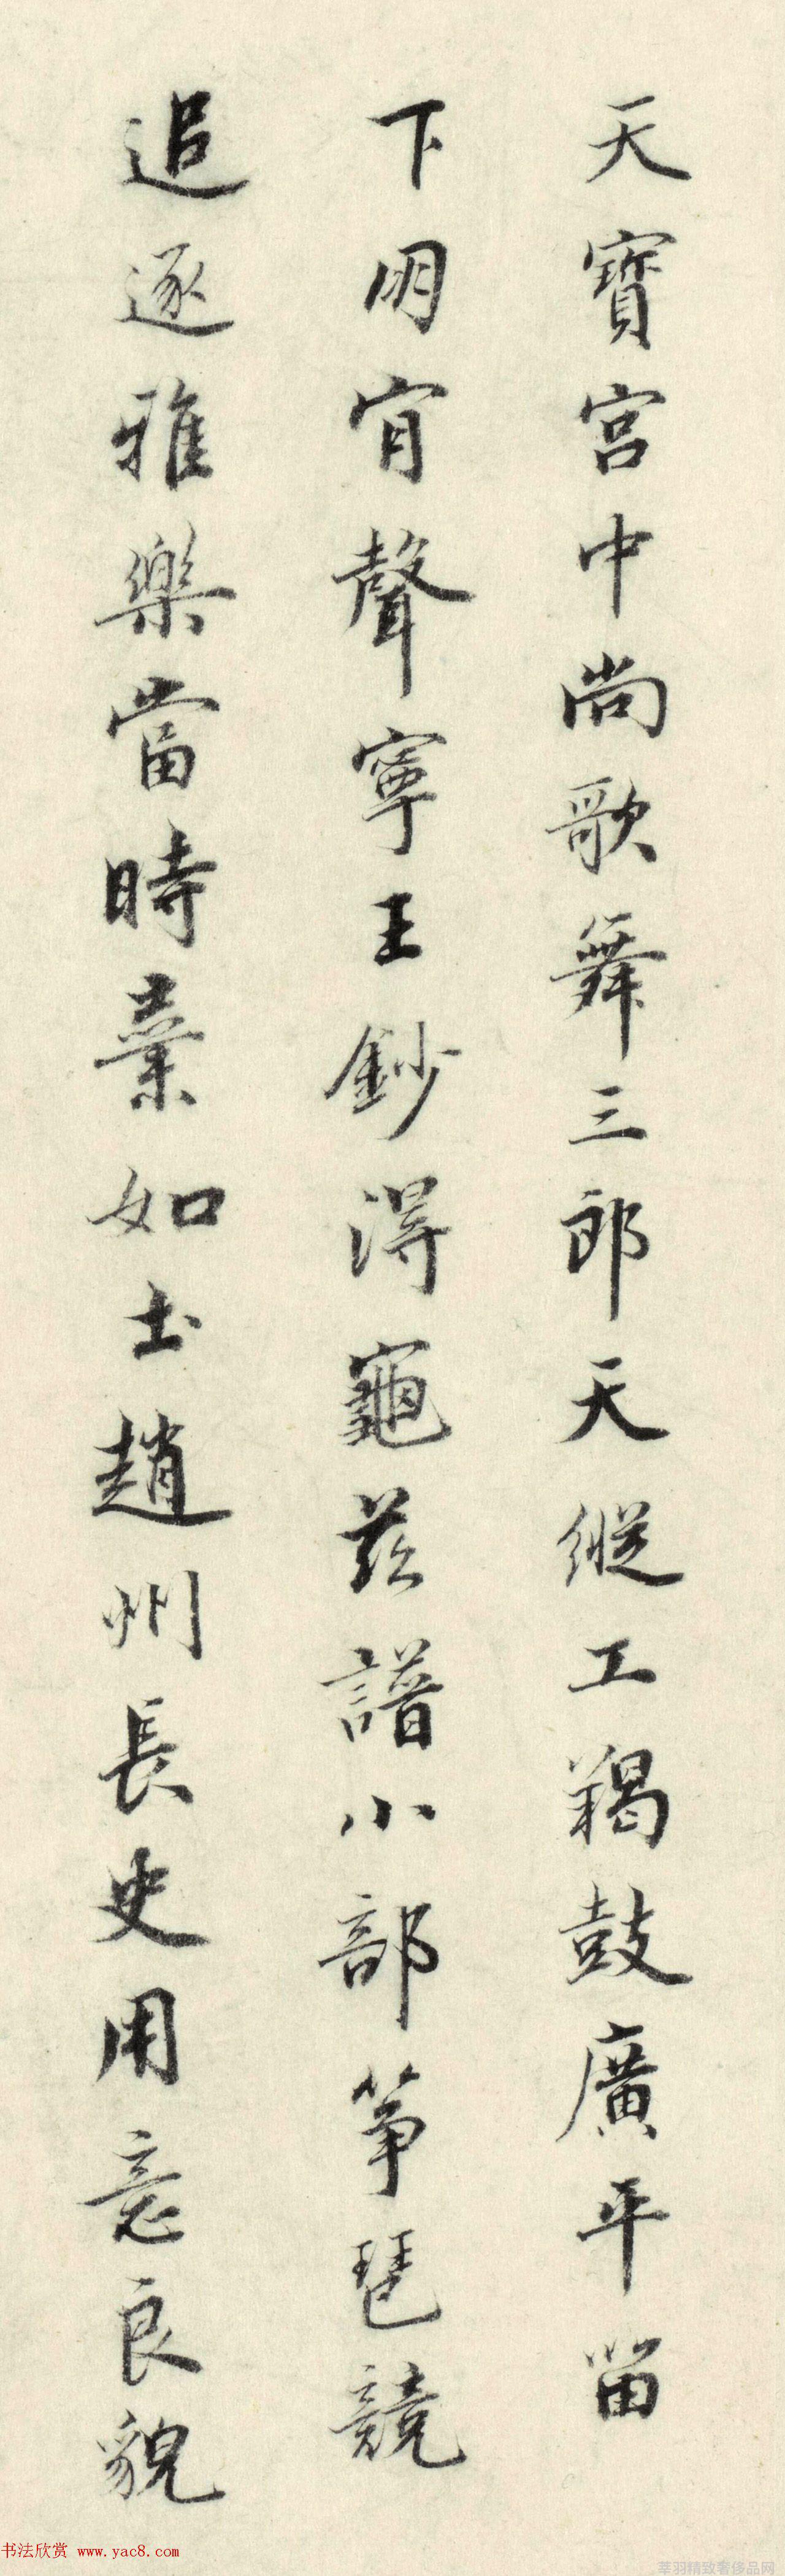 天寶宮中尚歌舞三郎天縱工羯鼓廣平留
下明肯聲寧王鈔得龜茲譜小部箏琶競
追逐雅樂當時棄如土趙州長史用意良貌
书法欣赏 www.yac8.com
莘羽精致奢侈品网